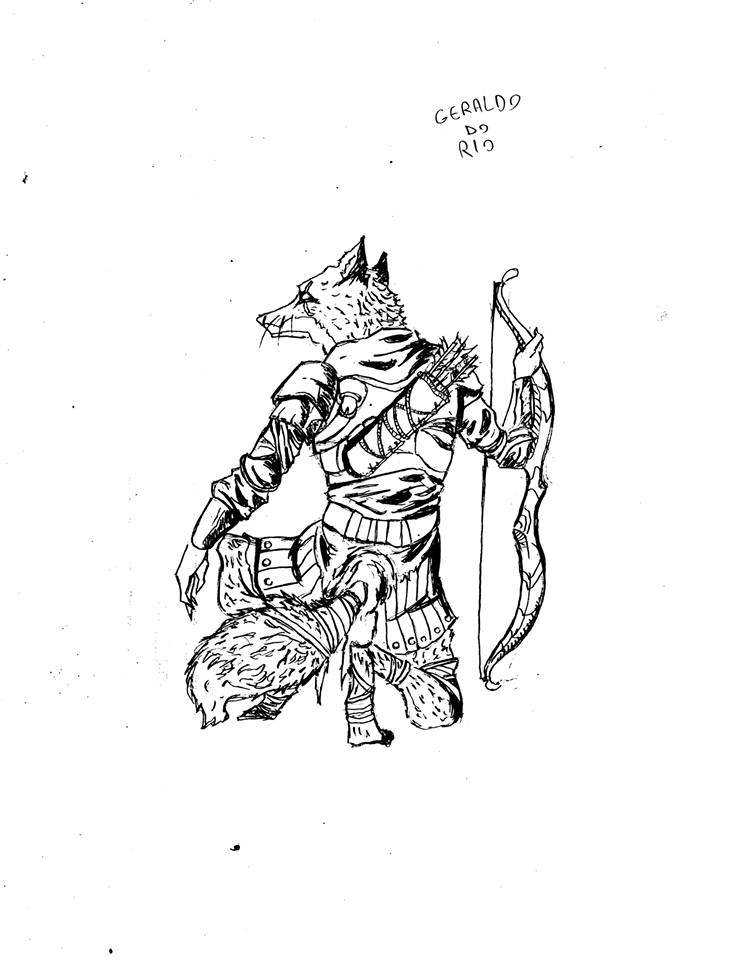 GERALDO
DO
RIO